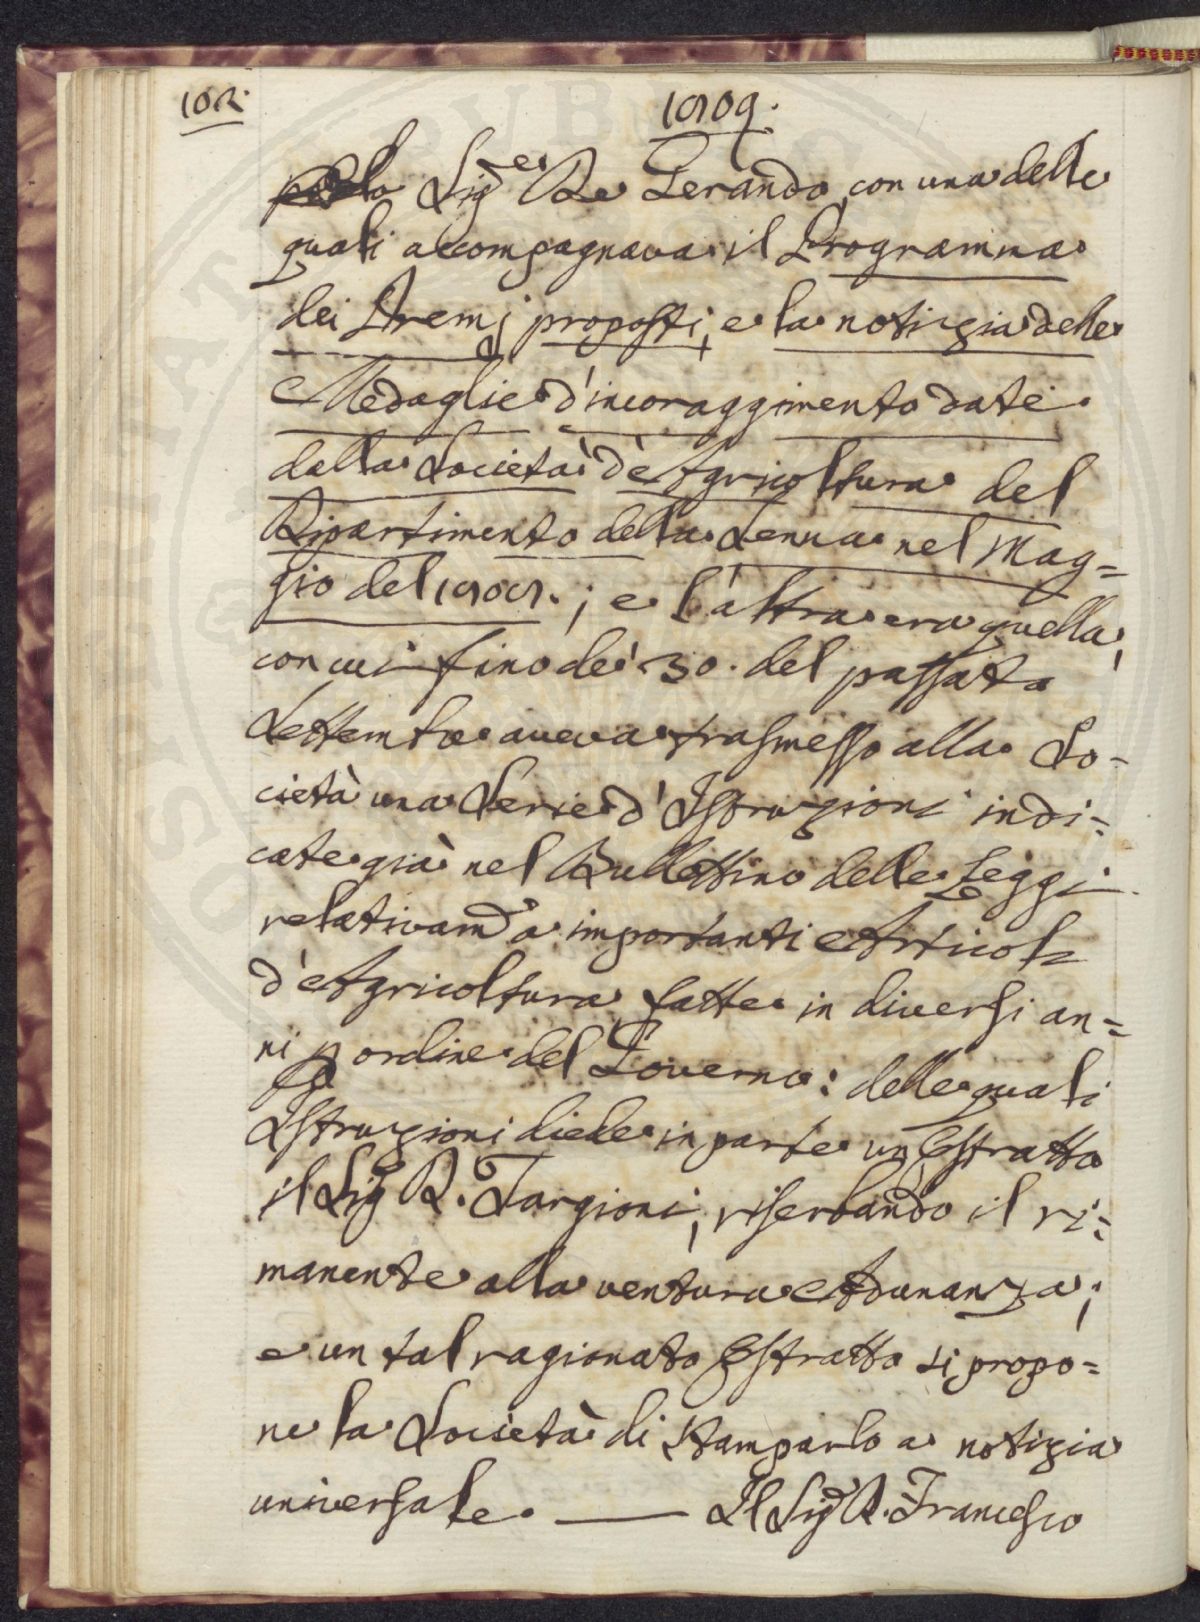 102.
1809.
Sig.re De Gerando, con una delle
quali accompagnava il Programma
dei Premj proposti, e la notizia delle
Medaglie d'incoraggimento date
dalla Società d'Agricoltura del
Ripartimento della Senna nel Mag=
gio del 1808.; e l'altra era quella,
con cui fino de' 30. del passato
Settembre aveva trasmesso alla So=
cietà una Serie d'Istruzioni indi=
cate già nel Bullettino delle Leggi
relativam.e a importanti Articoli
d'Agricoltura fatte in diversi an=
ni p ordine del Governo: delle quali
Istruzioni diede in parte un Estratto
il Sig. D. Targioni, riserbando il ri=
manente alla ventura Adunanza;
e un tal ragionato Estratto si propo=
ne la Società di stamparlo a notizia
universale. — Il Sig. D. Francesco